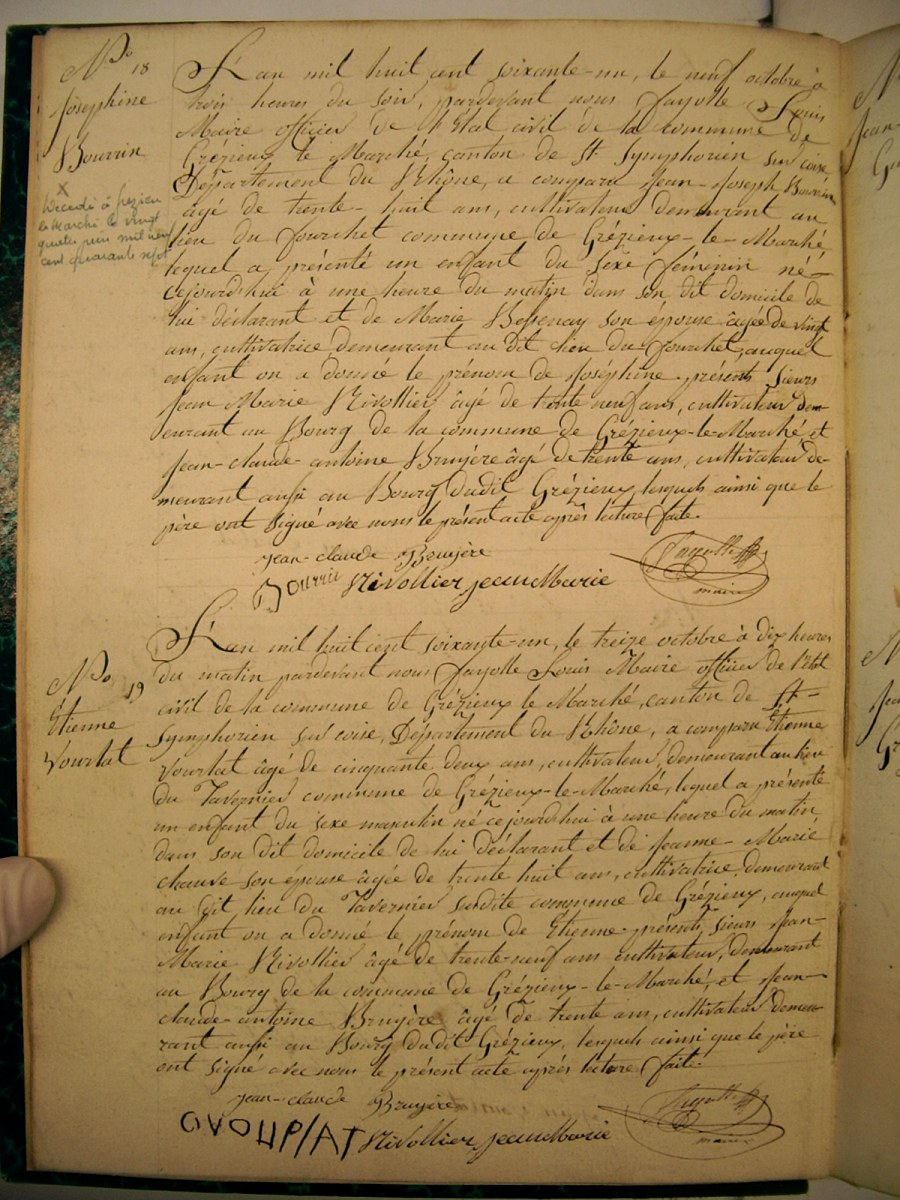 No 18
Joséphine
Bourrin
X
Décédée à Grézieu
le Marché le vingt
quatre juin mil neuf
cent quarante sept
L'an mil huit cent soixante-un, le neuf octobre à
trois heures du soir, pardevant nous Fayolle Louis
Maire officier de l'Etat civil de la commune de
Grézieux le Marché, canton de St Symphorien sur coise,
Département du Rhône, a comparu Jean-Joseph Bourrin
âgé de trente-huit ans, cultivateur demeurant au
lieu du Fourchet commune de Grézieux-le-Marché
lequel a présenté un enfant du sexe féminin né
cejourd'hui à une heure du matin dans son dit domicile de
lui déclarant et de Marie Bessenay son épouse âgée de vingt
ans, cultivatrice demeurant au dit lieu du Fourchet, auquel
enfant on a donné le prénom de Joséphine présents Sieurs
Jean Marie Rivollier âgé de trente neuf ans, cultivateur dem-
eurant au Bourg de la commune de Grézieux-le-Marché et
Jean-claude-antoine Bruyère âgé de trente ans, cultivateur de-
meurant aussi au Bourg dudit Grézieux, lesquels ainsi que le
père ont signé avec nous le présent acte après lecture faite.
jean-claude Bruyère
Fayolle
Bourrin Rivollier jean Marie
maire
No 19
Étienne
Vourlat
L'an mil huit cent soixante-un, le treize octobre à dix heures
du matin pardevant nous Fayolle Louis Maire officier de l'état
civil de la commune de Grézieux le Marché, canton de St-
Symphorien sur coise, Département du Rhône, a comparu Etienne
Vourlat âgé de cinquante deux ans, cultivateur, demeurant au lieu
du Tavernier commune de Grézieux-le-Marché, lequel a présenté
un enfant du sexe masculin né cejourd'hui à une heure du matin,
dans son dit domicile de lui déclarant et de Jeanne-Marie
chauve son épouse âgée de trente huit ans, cultivatrice demeurant
au dit lieu du Tavernier susdite commune de Grézieux, auquel
enfant on a donné le prénom de Etienne présents Sieurs Jean-
Marie Rivollier âgé de trente-neuf ans cultivateur, demeurant
au Bourg de la commune de Grézieux-le-Marché, et Jean-
claude-antoine Bruyère âgé de trente ans, cultivateur demeu-
rant aussi au Bourg dudit Grézieux, lesquels ainsi que le père
ont signé avec nous le présent acte après lecture faite.
jean-claude Bruyère
Fayolle
Rivollier jean Marie
maire